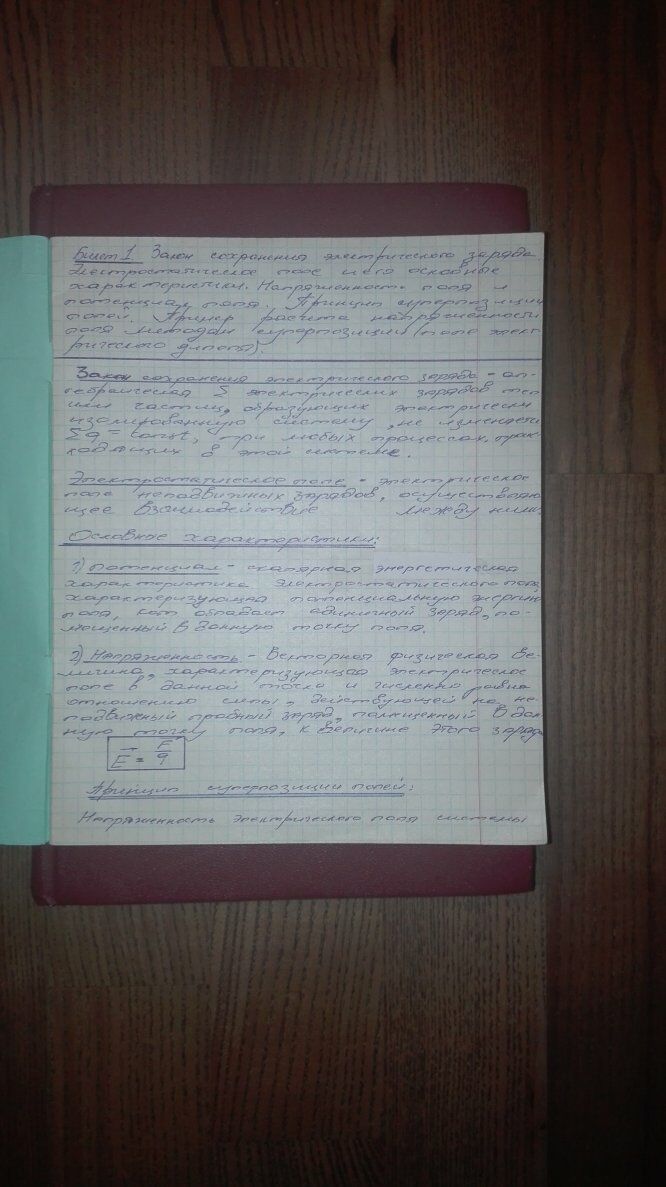 Билет 1. Закон сохранения электрического заряда.
Электростатическое поле и его основные
характеристики. Напряженность поля и
потенциал поля. Принцип суперпозиции
полей. Пример расчета напряженности
поля методом суперпозиции (поле элект-
рического диполя).
Закон сохранения электрического заряда - ал-
гебраическая Σ электрических зарядов тел
или частиц, образующих электрически
изолированную систему, не изменяется
Σq = const, при любых процессах, прои-
ходящих в этой системе.
Электростатическое поле - электрическое
поле неподвижных зарядов, осуществляю-
щее взаимодействие между ними.
Основные характеристики:
1) Потенциал - скалярная энергетическая
характеристика электростатического поля,
характеризующая потенциальную энергию
поля, кот. обладает единичный заряд, по-
мещенный в данную точку поля.
2) Напряженность - векторная физическая ве-
личина, характеризующая электрическое
поле в данной точке и численно равна
отношению силы, действующей на не-
подвижный пробный заряд, помещенный в дан-
ную точку поля, к величине этого заряда
E⃗ = F⃗/q
Принцип суперпозиции полей:
Напряженность электрического поля системы